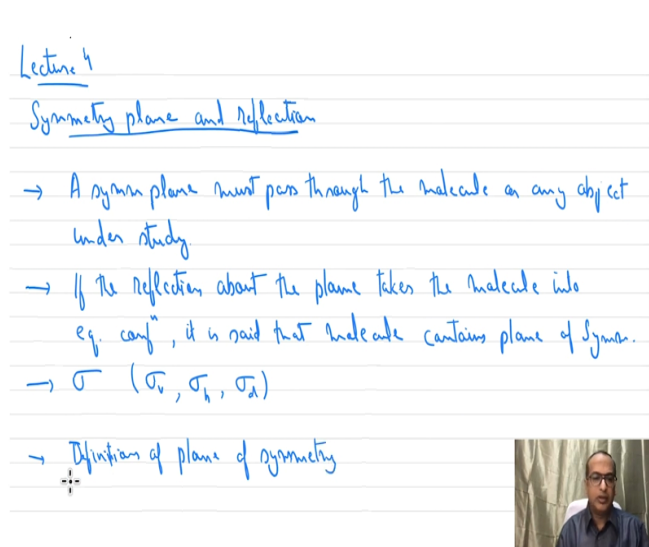 Lecture 4
Symmetry plane and reflection
→ A symm plane must pass through the molecule or any object
under study
→ If the reflection about the plane takes the molecule into
eq. confⁿ, it is said that molecule contains plane of Symm.
→ σ (σv, σh, σd)
→ Definition of plane of symmetry